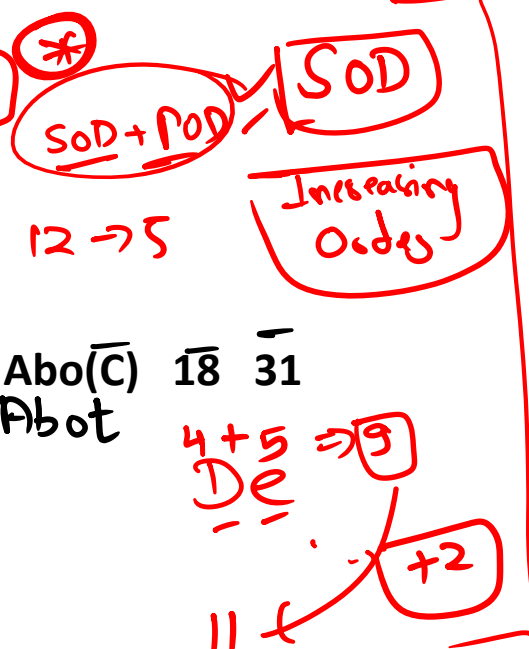 *
SOD
SOD + POD
Increasing
Order
12 → 5
Abo(C) 18 31
Abot
4 + 5 ⇒ 9
De
+2
11